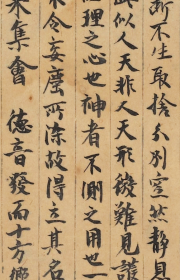 断不生取捨分別寂然靜見
此似人天非人天形後難見謹
理之心也神者不測之用也一
令妄塵所染故得立其名
來集會　德音發而十方嚮